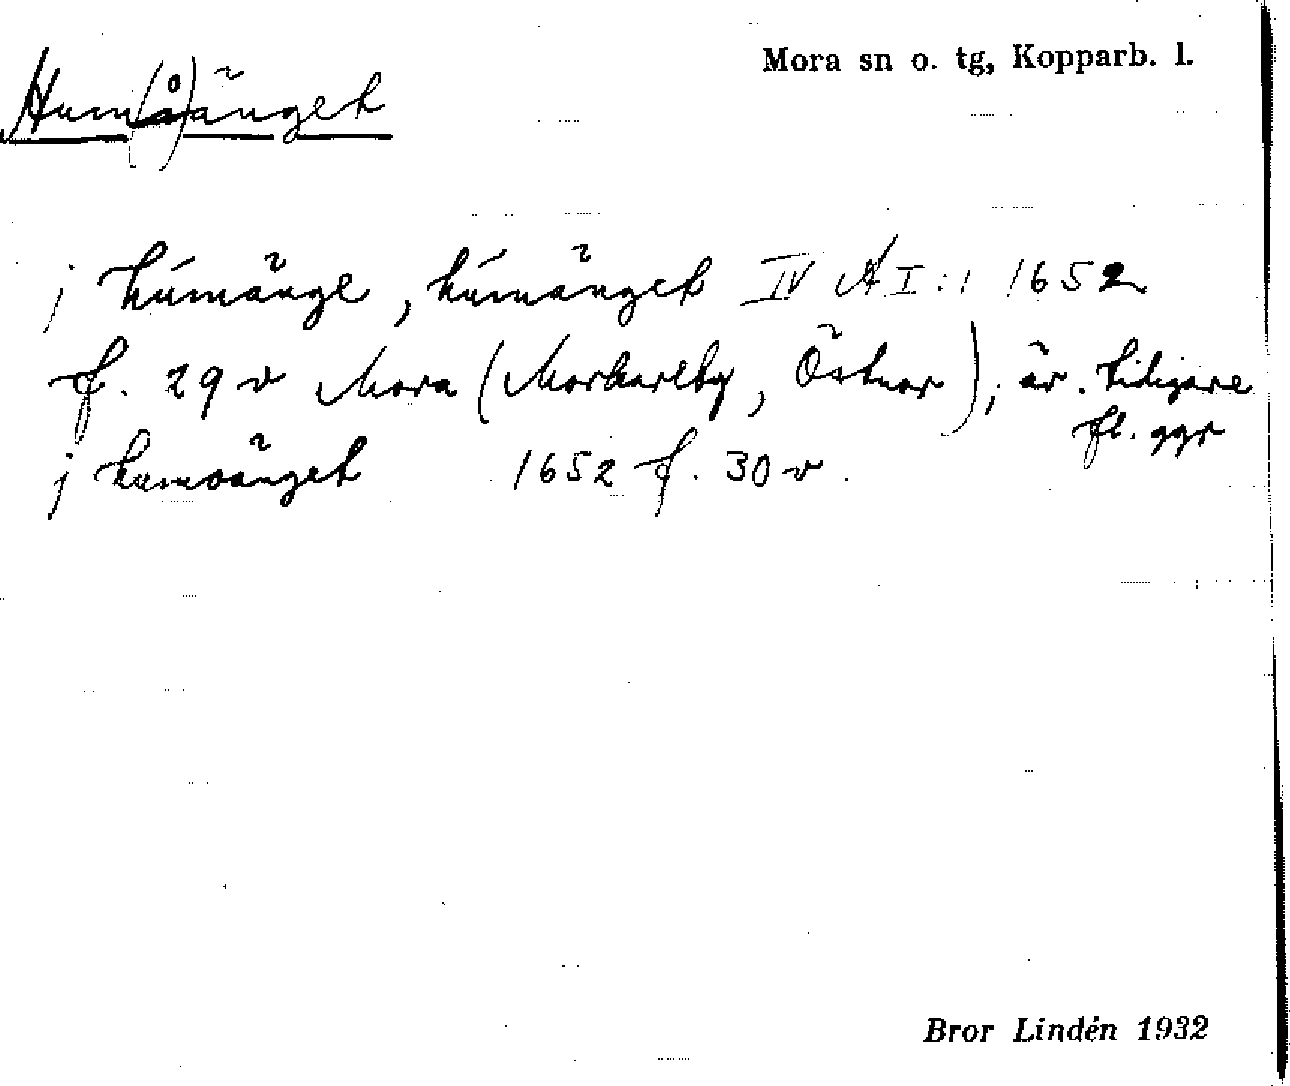 Mora sn o. tg, Kopparb. l.
Hum(å)änget
j húmänge, húmänget IV A I:1 1652
f. 29 v Mora (Morkarlby, Östnor); äv. tidigare
fl. ggr
j humoänget 1652 f. 30 v.
Bror Lindén 1932